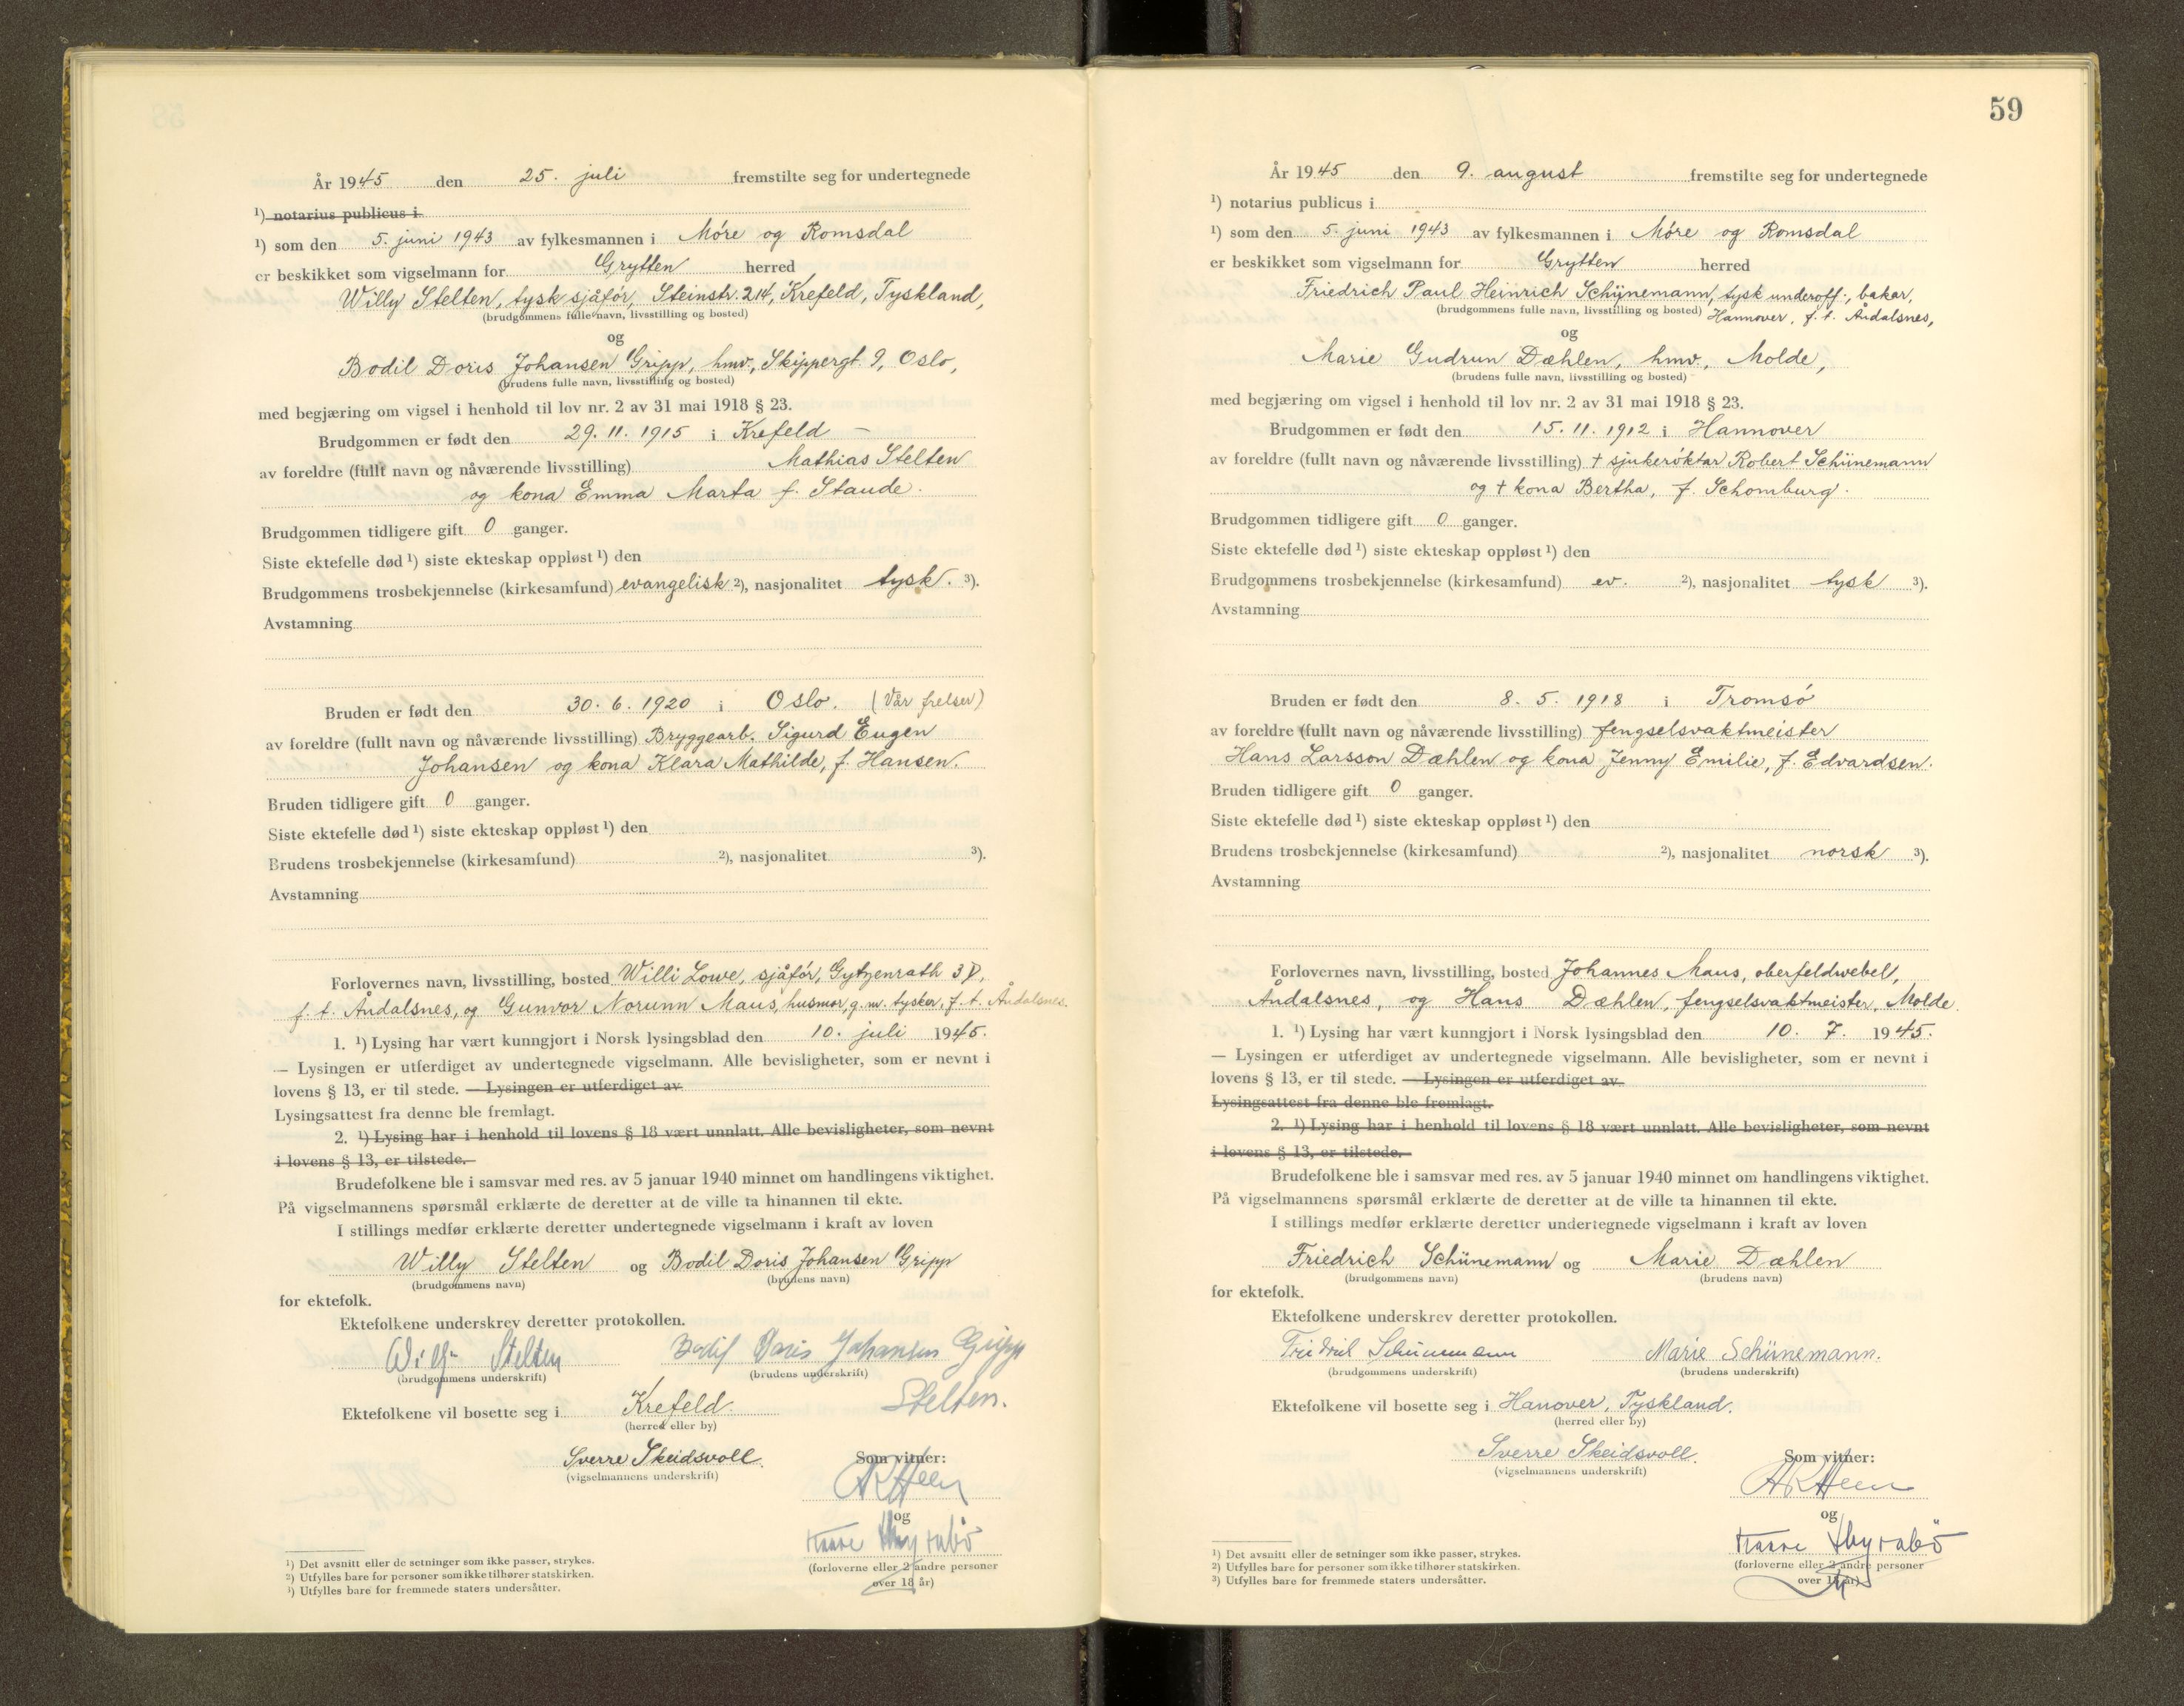 År 1945 den 25. juli fremstilte seg for undertegnede
¹) notarius publicus i
¹) som den 5. juni 1943 av fylkesmannen i Móre og Romsdal
er beskikket som vigselmann for Grytten herred
Willy Stelten, tysk sjåfór, Steinstr. 214, Krefeld, Tyskland,
(brudgommens fulle navn, livsstilling og bosted)
og
Bodil Doris Johansen Gripp, hmv., Skippergt. 9, Oslo,
(brudens fulle navn, livsstilling og bosted)
med begjæring om vigsel i henhold til lov nr. 2 av 31 mai 1918 § 23.
Brudgommen er født den 29. 11. 1915 i Krefeld –
av foreldre (fullt navn og nåværende livsstilling) Mathias Stelten
og kona Emma Marta f. Staude.
Brudgommen tidligere gift 0 ganger.
Siste ektefelle død ¹) siste ekteskap oppløst ¹) den
Brudgommens trosbekjennelse (kirkesamfund) evangelisk ²), nasjonalitet tysk. ³).
Avstamning
Bruden er født den 30. 6. 1920 i Oslo. (Vår frelser)
av foreldre (fullt navn og nåværende livsstilling) Bryggearb. Sigurd Eugen
Johansen og kona Klara Mathilde, f. Hansen.
Bruden tidligere gift 0 ganger.
Siste ektefelle død ¹) siste ekteskap oppløst ¹) den
Brudens trosbekjennelse (kirkesamfund) ²), nasjonalitet ³).
Avstamning
Forlovernes navn, livsstilling, bosted Willi Lowe, sjåfór, Gytzenrath 3
f. t. Åndalsnes, og Gunvor Norunn Maus, husmor, g. m. tysker, f. t. Åndalsnes.
1. ¹) Lysing har vært kunngjort i Norsk lysingsblad den 10. juli 1945.
— Lysingen er utferdiget av undertegnede vigselmann. Alle bevisligheter, som er nevnt i
lovens § 13, er til stede. — Lysingen er utferdiget av
Lysingsattest fra denne ble fremlagt.
2. ¹) Lysing har i henhold til lovens § 18 vært unnlatt. Alle bevisligheter, som nevnt
i lovens § 13, er tilstede.
Brudefolkene ble i samsvar med res. av 5 januar 1940 minnet om handlingens viktighet.
På vigselmannens spørsmål erklærte de deretter at de ville ta hinannen til ekte.
I stillings medfør erklærte deretter undertegnede vigselmann i kraft av loven
Willy Stelten og Bodil Doris Johansen Gripp
(brudgommens navn) (brudens navn)
for ektefolk.
Ektefolkene underskrev deretter protokollen.
Willy Stelten Bodil Doris Johansen Gripp
(brudgommens underskrift) (brudens underskrift)
Stelten.
Ektefolkene vil bosette seg i Krefeld.
(herred eller by)
Sverre Skeidsvoll. Som vitner:
(vigselmannens underskrift)
AKHeen
og
Kaare
(forloverne eller 2 andre personer
over 18 år)
¹) Det avsnitt eller de setninger som ikke passer, strykes.
²) Utfylles bare for personer som ikke tilhører statskirken.
¹) Utfylles bare for fremmede staters undersåtter.
59
År 1945 den 9. august fremstilte seg for undertegnede
¹) notarius publicus i
¹) som den 5. juni 1943 av fylkesmannen i Móre og Romsdal
er beskikket som vigselmann for Grytten herred
Friedrich Paul Heinrich Schünemann, tysk underoff., bakar,
(brudgommens fulle navn, livsstilling og bosted) Hannover, f. t. Åndalsnes,
og
Marie Gudrun Dæhlen, hmv., Molde,
(brudens fulle navn, livsstilling og bosted)
med begjæring om vigsel i henhold til lov nr. 2 av 31 mai 1918 § 23.
Brudgommen er født den 15. 11. 1912 i Hannover
av foreldre (fullt navn og nåværende livsstilling) † sjukeróktar Robert Schünemann
og † kona Bertha, f. Schomburg.
Brudgommen tidligere gift 0 ganger.
Siste ektefelle død ¹) siste ekteskap oppløst ¹) den
Brudgommens trosbekjennelse (kirkesamfund) ev. ²), nasjonalitet tysk ³).
Avstamning
Bruden er født den 8. 5. 1918 i Tromsó
av foreldre (fullt navn og nåværende livsstilling) fengselsvaktmeister
Hans Larsson Dæhlen og kona Jenny Emilie, f. Edvardsen.
Bruden tidligere gift 0 ganger.
Siste ektefelle død ¹) siste ekteskap oppløst ¹) den
Brudens trosbekjennelse (kirkesamfund) ²), nasjonalitet norsk ³).
Avstamning
Forlovernes navn, livsstilling, bosted Johannes Maus, oberfeldwebel,
Åndalsnes, og Hans Dæhlen, fengselsvaktmeister, Molde.
1. ¹) Lysing har vært kunngjort i Norsk lysingsblad den 10. 7. 1945.
— Lysingen er utferdiget av undertegnede vigselmann. Alle bevisligheter, som er nevnt i
lovens § 13, er til stede. — Lysingen er utferdiget av
Lysingsattest fra denne ble fremlagt.
2. ¹) Lysing har i henhold til lovens § 18 vært unnlatt. Alle bevisligheter, som nevnt
i lovens § 13, er tilstede.
Brudefolkene ble i samsvar med res. av 5 januar 1940 minnet om handlingens viktighet.
På vigselmannens spørsmål erklærte de deretter at de ville ta hinannen til ekte.
I stillings medfør erklærte deretter undertegnede vigselmann i kraft av loven
Friedrich Schünemann og Marie Dæhlen
(brudgommens navn) (brudens navn)
for ektefolk.
Ektefolkene underskrev deretter protokollen.
Friedrich Schünemann Marie Schünemann.
(brudgommens underskrift) (brudens underskrift)
Ektefolkene vil bosette seg i Hanover, Tyskland.
(herred eller by)
Sverre Skeidsvoll. Som vitner:
(vigselmannens underskrift)
AKHeen
og
Kaare
(forloverne eller 2 andre personer
over 18 år)
¹) Det avsnitt eller de setninger som ikke passer, strykes.
²) Utfylles bare for personer som ikke tilhører statskirken.
³) Utfylles bare for fremmede staters undersåtter.